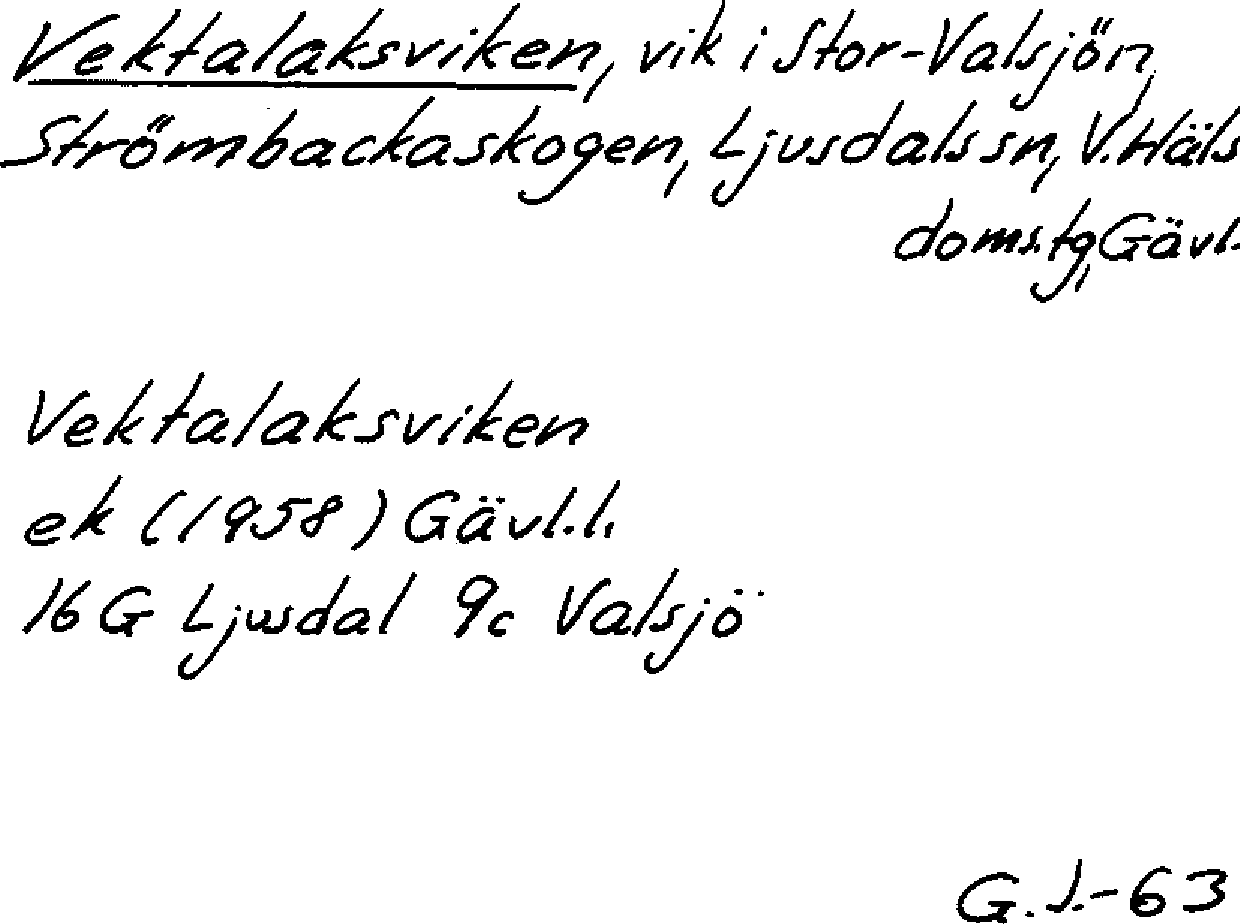 Vektalaksviken, vik i Stor-Valsjön,
Strömbackaskogen, Ljusdals sn, V. Häls
doms.tg, Gävl.
Vektalaksviken
ek (1958) Gävl.l.
16 G Ljusdal 9c Valsjö
G.J.-63